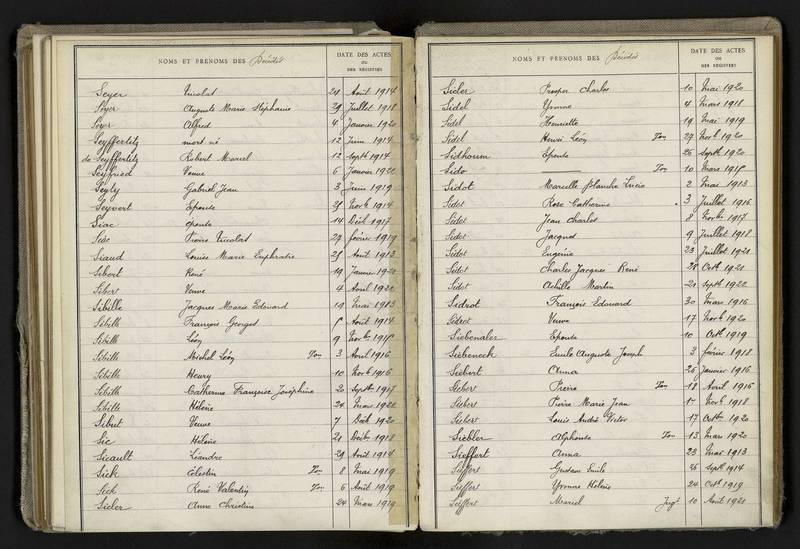 NOMS ET PRÉNOMS DES Décédés DATE DES ACTES
OU
DES REGISTRES
Seyer Nicolas 24 Août 1914
Seyer Auguste Marie Stéphanie 29 Juillet 1918
Seyer Alfred 4 Janvier 1920
Seyffertitz mort né 12 Juin 1914
de Seyffertitz Robert Marcel 12 Septb 1914
Seyfried Veuve 6 Janvier 1922
Seyly Gabriel Jean 3 Juin 1919
Seyvert Epouse Novb 1914
Siac épouse 14 Déc 1917
Siac Pierre Nicolas 27 février 1919
Siaud Louise Marie Euphrasie Août 1913
Sibert René 19 Janvier 1920
Sibert Veuve 4 Août 1922
Sibille Jacques Marie Edouard 19 Mai 1913
Sibille François Georges Août 1914
Sibille Léon 9 Novb
Sibille Michel Léon Ton 3 Avril 1916
Sibille Henry 10 Novb 1916
Sibille Catherine Françoise Joséphine 20 Septb 1917
Sibille Hélène 24 Mars 1922
Sibut Veuve 7 Déc 1920
Sic Hélène 21 Décb 1918
Sicault Léandre 29 Août 1914
Sick Célestin Ton 8 Mai 1919
Sick René Valentin Ton 6 Août 1919
Sicler Anne Christine 24 Mars 1919
NOMS ET PRÉNOMS DES Décédés DATE DES ACTES
OU
DES REGISTRES
Sicler Prosper Charles 10 Mai 1920
Sidel Yvonne 4 Mars 1918
Sidel Henriette 19 Mai 1919
Sidel Henri Léon Ton 29 Novb 1920
Sidhoum Epouse 26 Septb 1920
Sido — Ton 10 Mars
Sidot Marcelle Blanche Lucie 2 Mai 1913
Sidot Rose Catherine 3 Juillet 1916
Sidot Jean Charles 8 Novb 1917
Sidot Jacques 9 Juillet 1918
Sidot Eugénie 23 Juillet 1920
Sidot Charles Jacques René 28 Octb 1920
Sidot Achille Martin 21 Septb 1922
Sidrot François Edouard 30 Mars 1916
Sidrot Veuve 17 Novb 1920
Siebenaler Epouse 10 Octb 1919
Siebeneck Emile Auguste Joseph 3 février 1918
Siebert Anna 26 Janvier 1916
Siebert Pierre Ton 18 Avril 1916
Siebert Pierre Marie Jean Novb 1918
Siebert Louis André Victor 17 Octb 1920
Siebler Alphonse Ton 13 Mars 1920
Sieffert Anna 23 Mai 1913
Sieffert Gustave Emile 26 Septb 1914
Sieffert Yvonne Hélène 24 Octb 1919
Sieffert Marcel Jugt 10 Août 1921